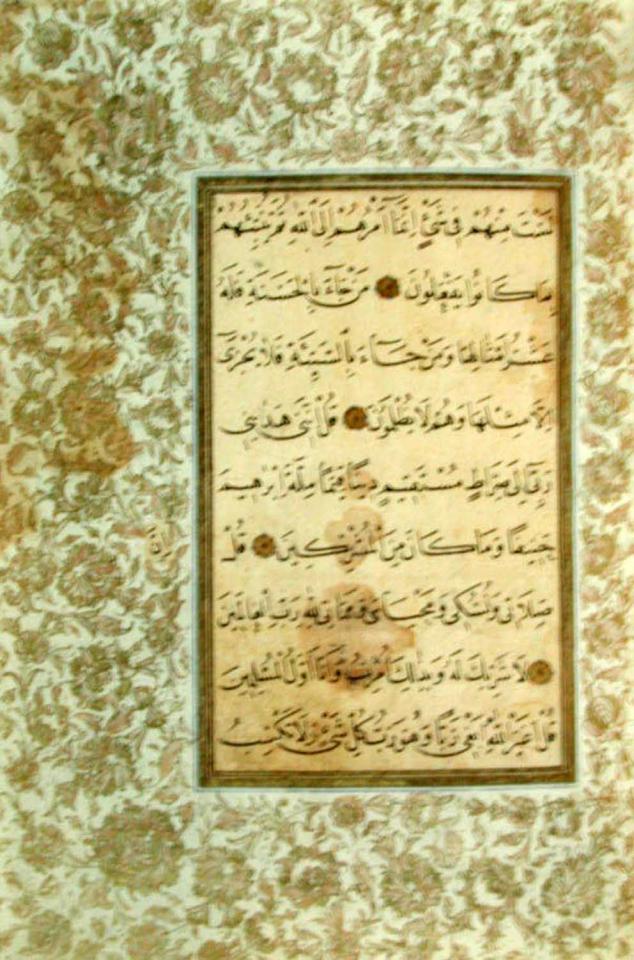 لَسْتَ مِنْهُمْ فِى شَىْءٍ إِنَّمَا أَمْرُهُمْ إِلَى اللهِ ثُمَّ يُنَبِّئُهُمْ
بِمَا كَانُوا يَفْعَلُونَ مَنْ جَاءَ بِالْحَسَنَةِ فَلَهُ
عَشْرُ أَمْثَالِهَا وَمَنْ جَاءَ بِالسَّيِّئَةِ فَلَا يُجْزَى
إِلَّا مِثْلَهَا وَهُمْ لَا يُظْلَمُونَ قُلْ إِنَّنِى هَدٰينِى
رَبِّى إِلَى صِرَاطٍ مُسْتَقِيمٍ دِينًا قِيَمًا مِلَّةَ إِبْرٰهِيمَ
حَنِيفًا وَمَا كَانَ مِنَ الْمُشْرِكِينَ قُلْ
إِنَّ
صَلَاتِى وَنُسُكِى وَمَحْيَاىَ وَمَمَاتِى لِلّٰهِ رَبِّ الْعَالَمِينَ
لَا شَرِيكَ لَهُ وَبِذٰلِكَ أُمِرْتُ وَأَنَا أَوَّلُ الْمُسْلِمِينَ
قُلْ أَغَيْرَ اللهِ أَبْغِى رَبًّا وَهُوَ رَبُّ كُلِّ شَىْءٍ وَلَا تَكْسِبُ